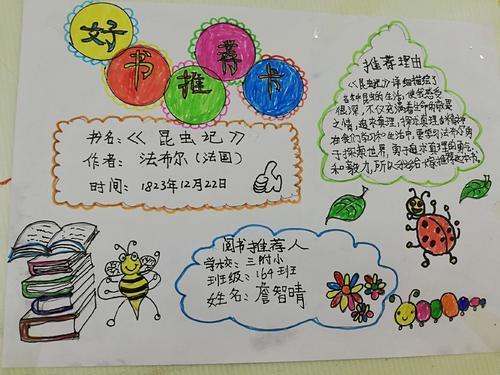 好书推荐卡
书名:《昆虫记》
作者: 法布尔(法国)
时间: 1823年12月22日
推荐理由
《昆虫记》详细描绘了
各种昆虫的生活,使我感受
很深,不仅充满着生命的敬畏
之情,追求真理,探求真理的精神
在我们学习和生活中,更要向法布尔勇
于探索世界,勇于追求真理的勇气
和毅力,所以我给
图书推荐人
学校: 三附小
班级: 164班
姓名: 詹智晴